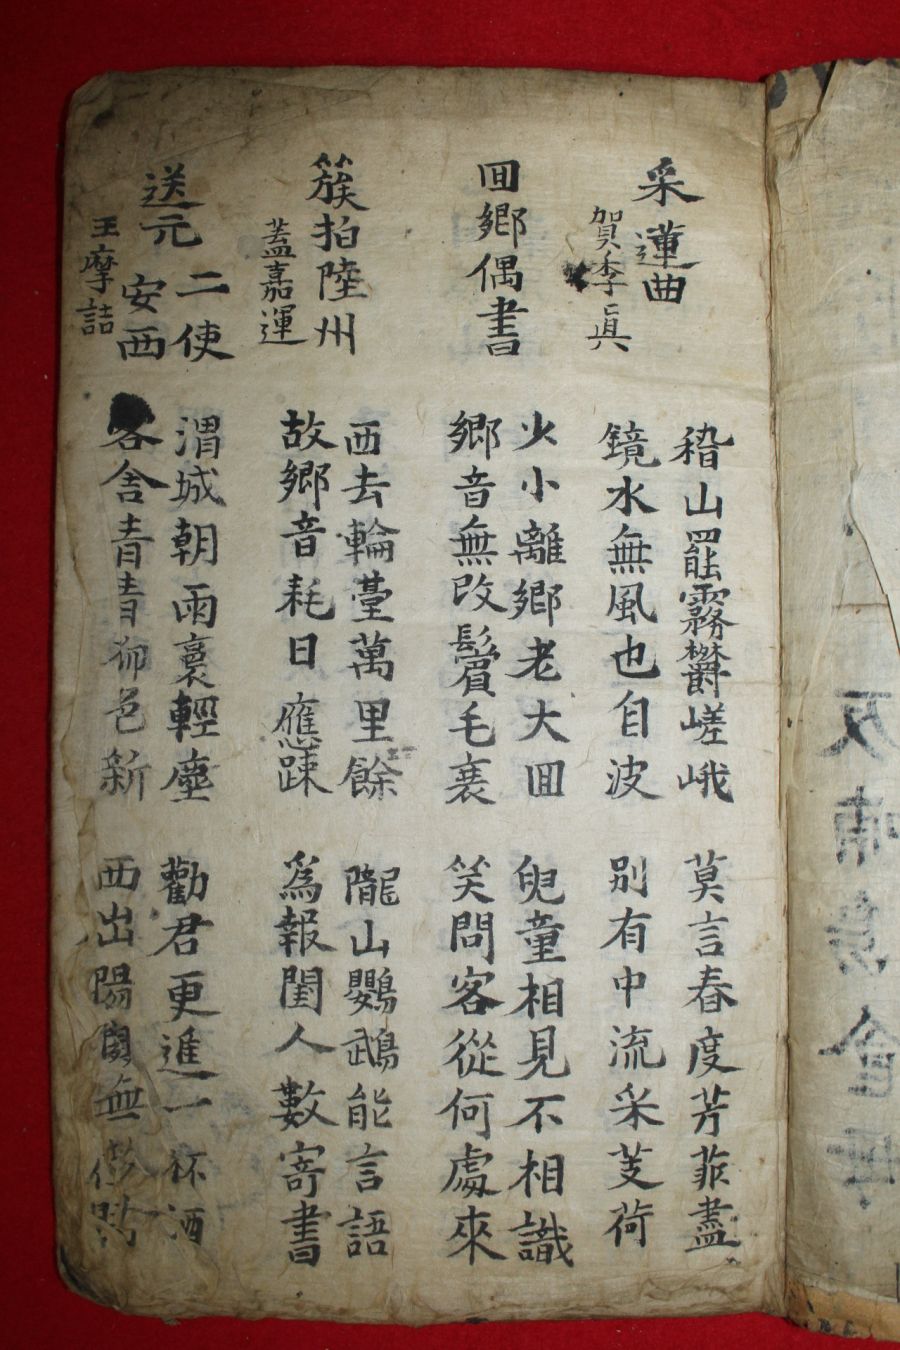 采蓮曲
賀季真
稽山罷霧欝嵯峨
鏡水無風也自波
莫言春度芳菲盡
別有中流采芰荷
回鄉偶書
少小離鄉老大回
鄉音無改鬢毛衰
兒童相見不相識
笑問客從何處來
簇拍陸州
蓋嘉運
西去輪臺萬里餘
故鄉音耗日應疎
隴山鸚鵡能言語
為報閨人數寄書
送元二使安西
王摩詰
渭城朝雨裛輕塵
客舍青青柳色新
勸君更進一杯酒
西出陽關無